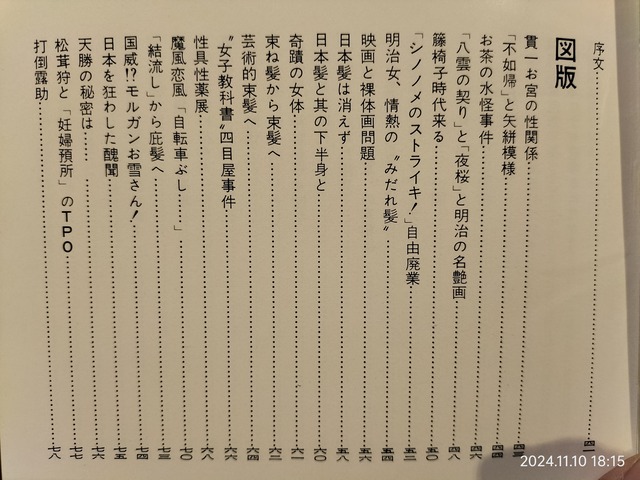 序文……四一
図版
貫一お宮の性関係……
「不如帰」と矢絣模様……四四
お茶の水怪事件……四六
「八雲の契り」と「夜桜」と明治の名艶画……四八
籐椅子時代来る……五〇
「シノノメのストライキ！」自由廃業……五二
明治女、情熱の〝みだれ髪〟……五四
映画と裸体画問題……五六
日本髪は消えず……五八
日本髪と其の下半身と……六〇
奇蹟の女体……六一
束ね髪から束髪へ……六二
芸術的束髪へ……六四
〝女子教科書〟四目屋事件……六六
性具性薬展……六八
魔風恋風「自転車ぶし……」……七〇
「結流し」から庇髪へ……七三
国威!?モルガンお雪さん！……七四
日本を狂わした醜聞……七五
天勝の秘密は……　……七六
松茸狩と「妊婦預所」のTPO……七七
打倒露助……七八
2024.11.10 18:15